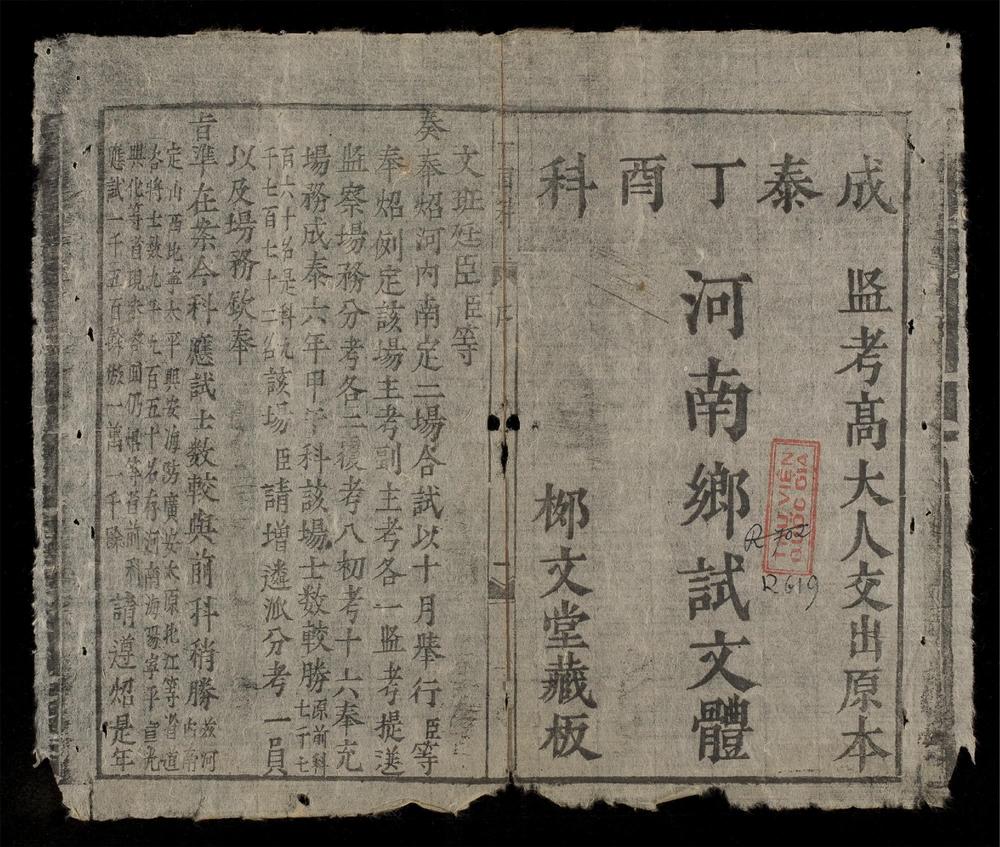 成泰丁酉科
監考高大人交出原本
河南鄉試文體
栁文堂藏板
THƯ VIỆN
QUỐC GIA
R 619
文班廷臣臣等
奏奉炤河內南定二場合試以十月舉行臣等
奉炤例定該場主考副主考各一監考提遞
監察場務分考各二覆考八初考十六奉充
場務成泰六年甲午科該場士数較勝原前科七千七
百六十名是科九千七百七十二名該場臣請增遴派分考一員
以及場務欽奉
旨準在案今科應試士数較與前科稍勝茲河內南
定山西北寧太平興安海防廣安太原北江等省道
各將士数九千九百五十名存河南海陽寧平宣光
興化等省現未咨回仍據等省前科
應試一千五百餘該一萬一千餘請遵炤是年